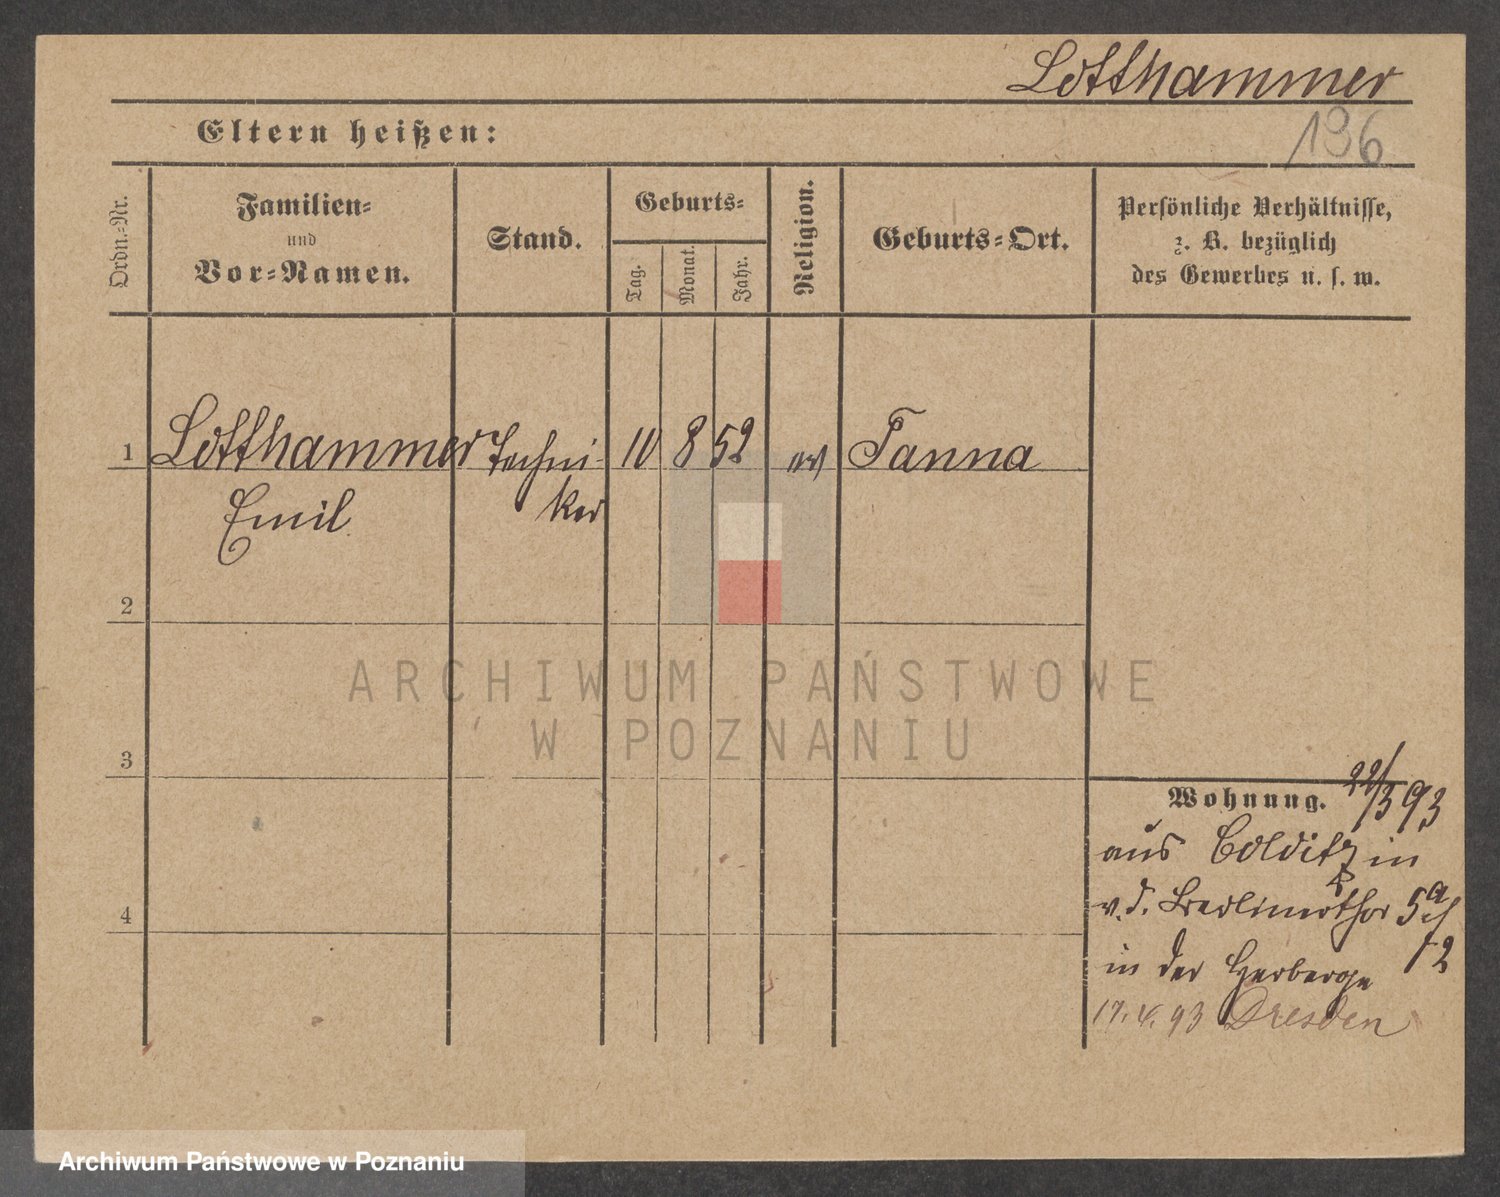 Lotthammer
Eltern heißen:
196
Ordn.-Nr.
Familien-
und
Vor-Namen.
Stand.
Geburts-
Tag.
Monat.
Jahr.
Religion.
Geburts-Ort.
Persönliche Verhältnisse,
z. B. bezüglich
des Gewerbes u. s. w.
1 Lotthammer Techni- 10 8 52 ev Tanna
Emil ker
2
3
4
Wohnung. 22/3 93
aus Colditz in
v. d. Berlinerthor 5a
in der Herberge 12
17. 4. 93 Dresden
ARCHIWUM PAŃSTWOWE
W POZNANIU
Archiwum Państwowe w Poznaniu